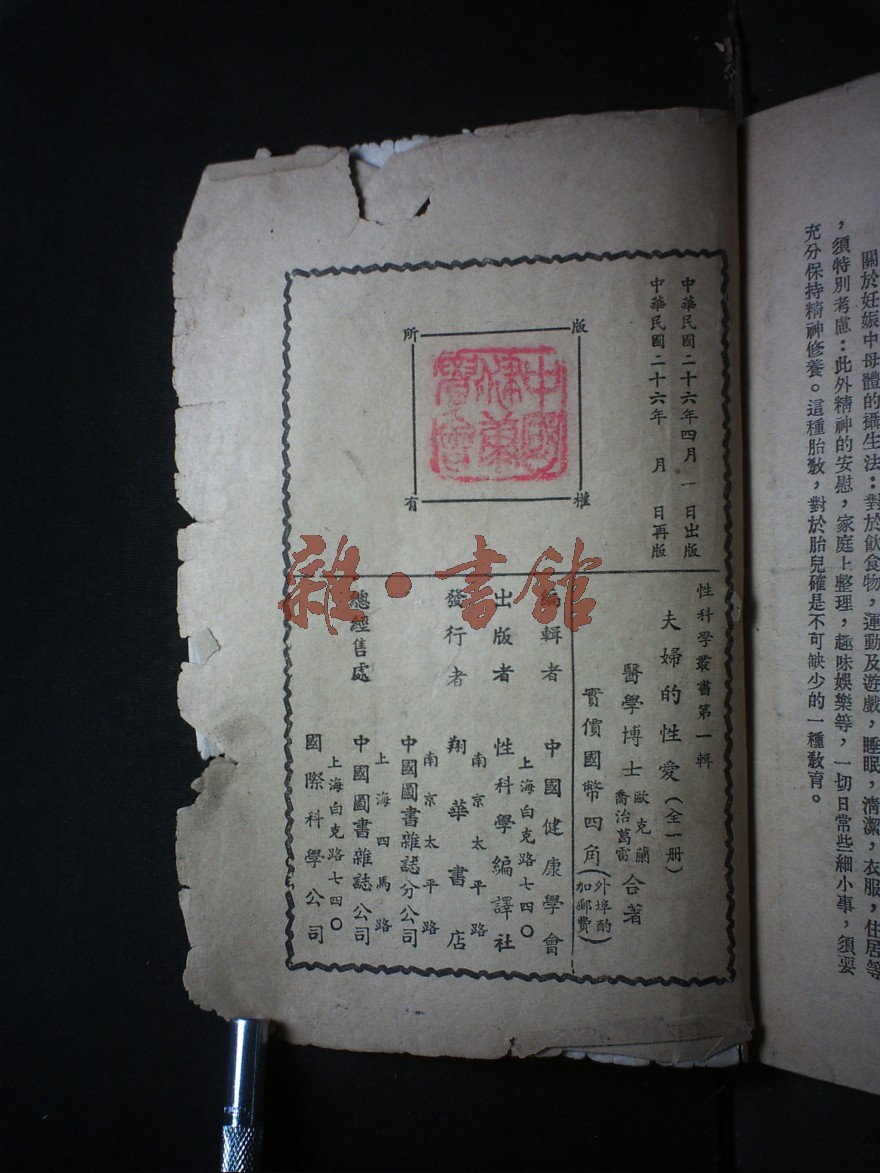 關於妊娠中母體的攝生法：對於飲食物，運動及遊戲，睡眠，清潔，衣服，住居等
，須特別考慮：此外精神的安慰，家庭上整理，趣味娛樂等，一切日常些細小事，須要
充分保持精神修養。這種胎教，對於胎兒確是不可缺少的一種教育。
中華民國二十六年四月一日出版
中華民國二十六年 月 日再版
版權所有
中國健康學會
性科學叢書第一輯
夫婦的性愛（全一册）
醫學博士 歐克蘭 喬治葛雷 合著
實價國幣四角（外埠酌加郵費）
編輯者 中國健康學會
上海白克路七四〇
出版者 性科學編譯社
南京太平路
發行者 翔華書店
南京太平路
中國圖書雜誌分公司
上海四馬路
總經售處 中國圖書雜誌公司
上海白克路七四〇
國際科學公司
雜·書館